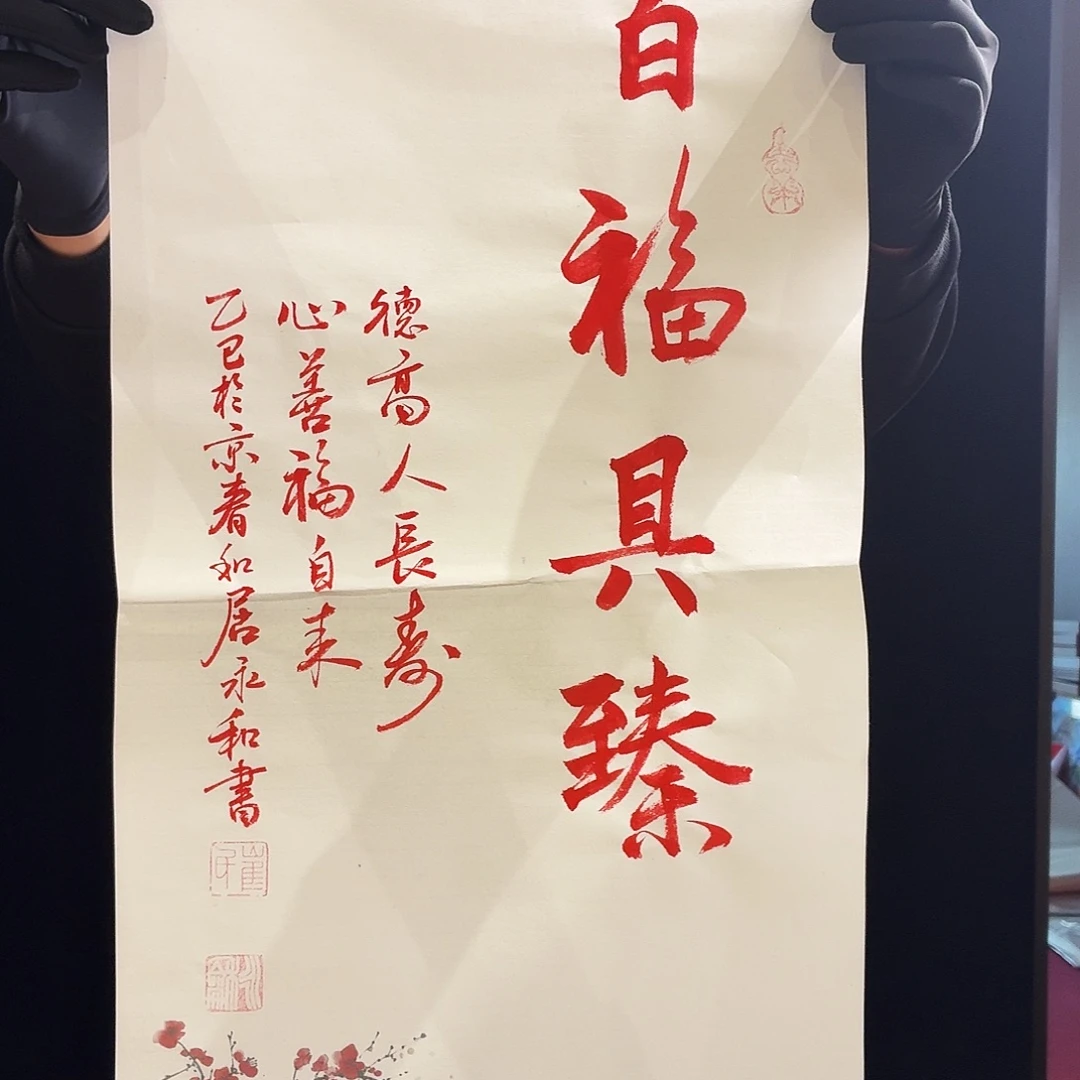 百福具臻
德高人長壽
心善福自来
乙巳於京春和居永和書